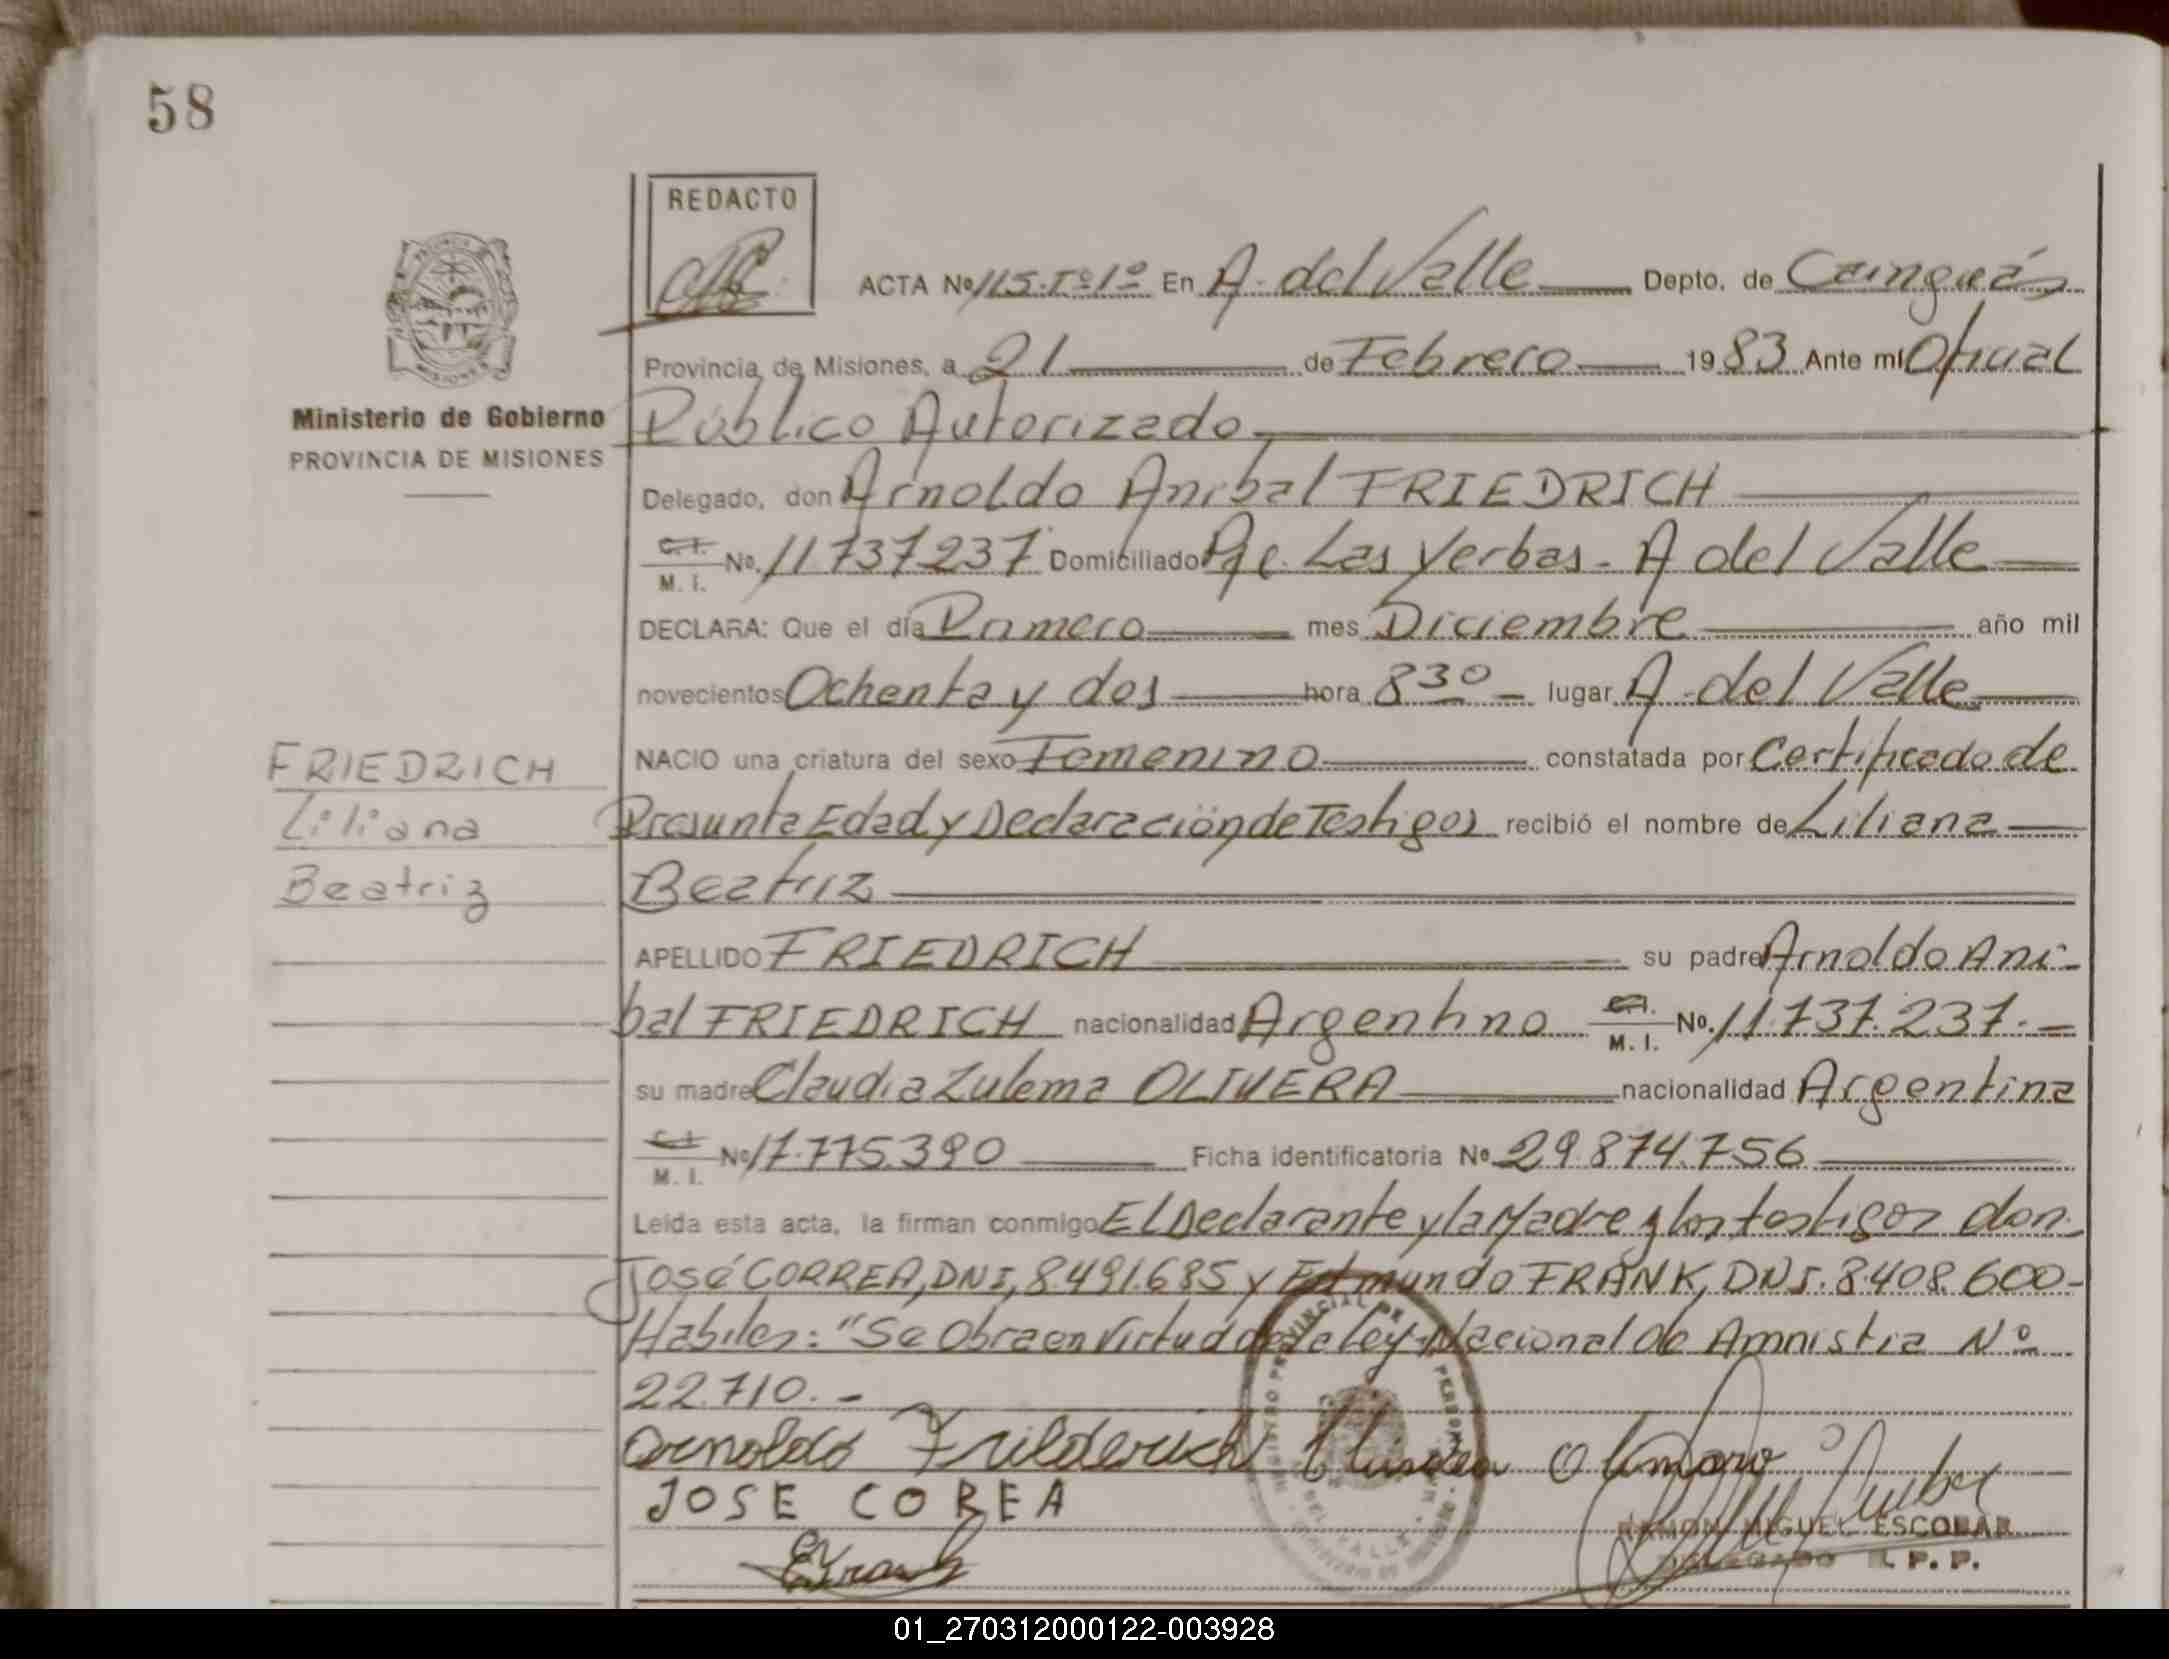 58
REDACTO
ACTA Nº 115.Tº1º En A. del Valle Depto. de Cainguás
Provincia de Misiones, a 21 de Febrero 1983 Ante mí Oficial
Ministerio de Gobierno
PROVINCIA DE MISIONES
Público Autorizado
Delegado, don Arnoldo Anibal FRIEDRICH
C.I. M.I. Nº. 11737237 Domiciliado Pje. Las Yerbas - A del Valle
DECLARA: Que el día Primero mes Diciembre año mil
novecientos Ochenta y dos hora 8 30 lugar A. del Valle
NACIO una criatura del sexo Femenino constatada por Certificado de
Presunta Edad y Declaración de Testigos recibió el nombre de Liliana
Beatriz
FRIEDRICH
Liliana
Beatriz
APELLIDO FRIEDRICH su padre Arnoldo Ani-
bal FRIEDRICH nacionalidad Argentino C.I. M.I. Nº. 11.737.237.-
su madre Claudia Zulema OLIVERA nacionalidad Argentina
C.I. M.I. Nº 17.775.390 Ficha identificatoria Nº 29.874.756
Leída esta acta, la firman conmigo El Declarante y la Madre y los testigos don
José CORREA, DNI, 8.491.685 y Edmundo FRANK, DNI. 8.408.600-
Habiles: "Se Obra en Virtud de la Ley Nacional de Amnistia Nº
22.710.-
Arnoldo Frilderich
JOSE COREA
EFrank
REGISTRO PROVINCIAL DE
DEL VALLE
RAMON MIGUEL ESCOBAR
DELEGADO R. P. P.
01_270312000122-003928